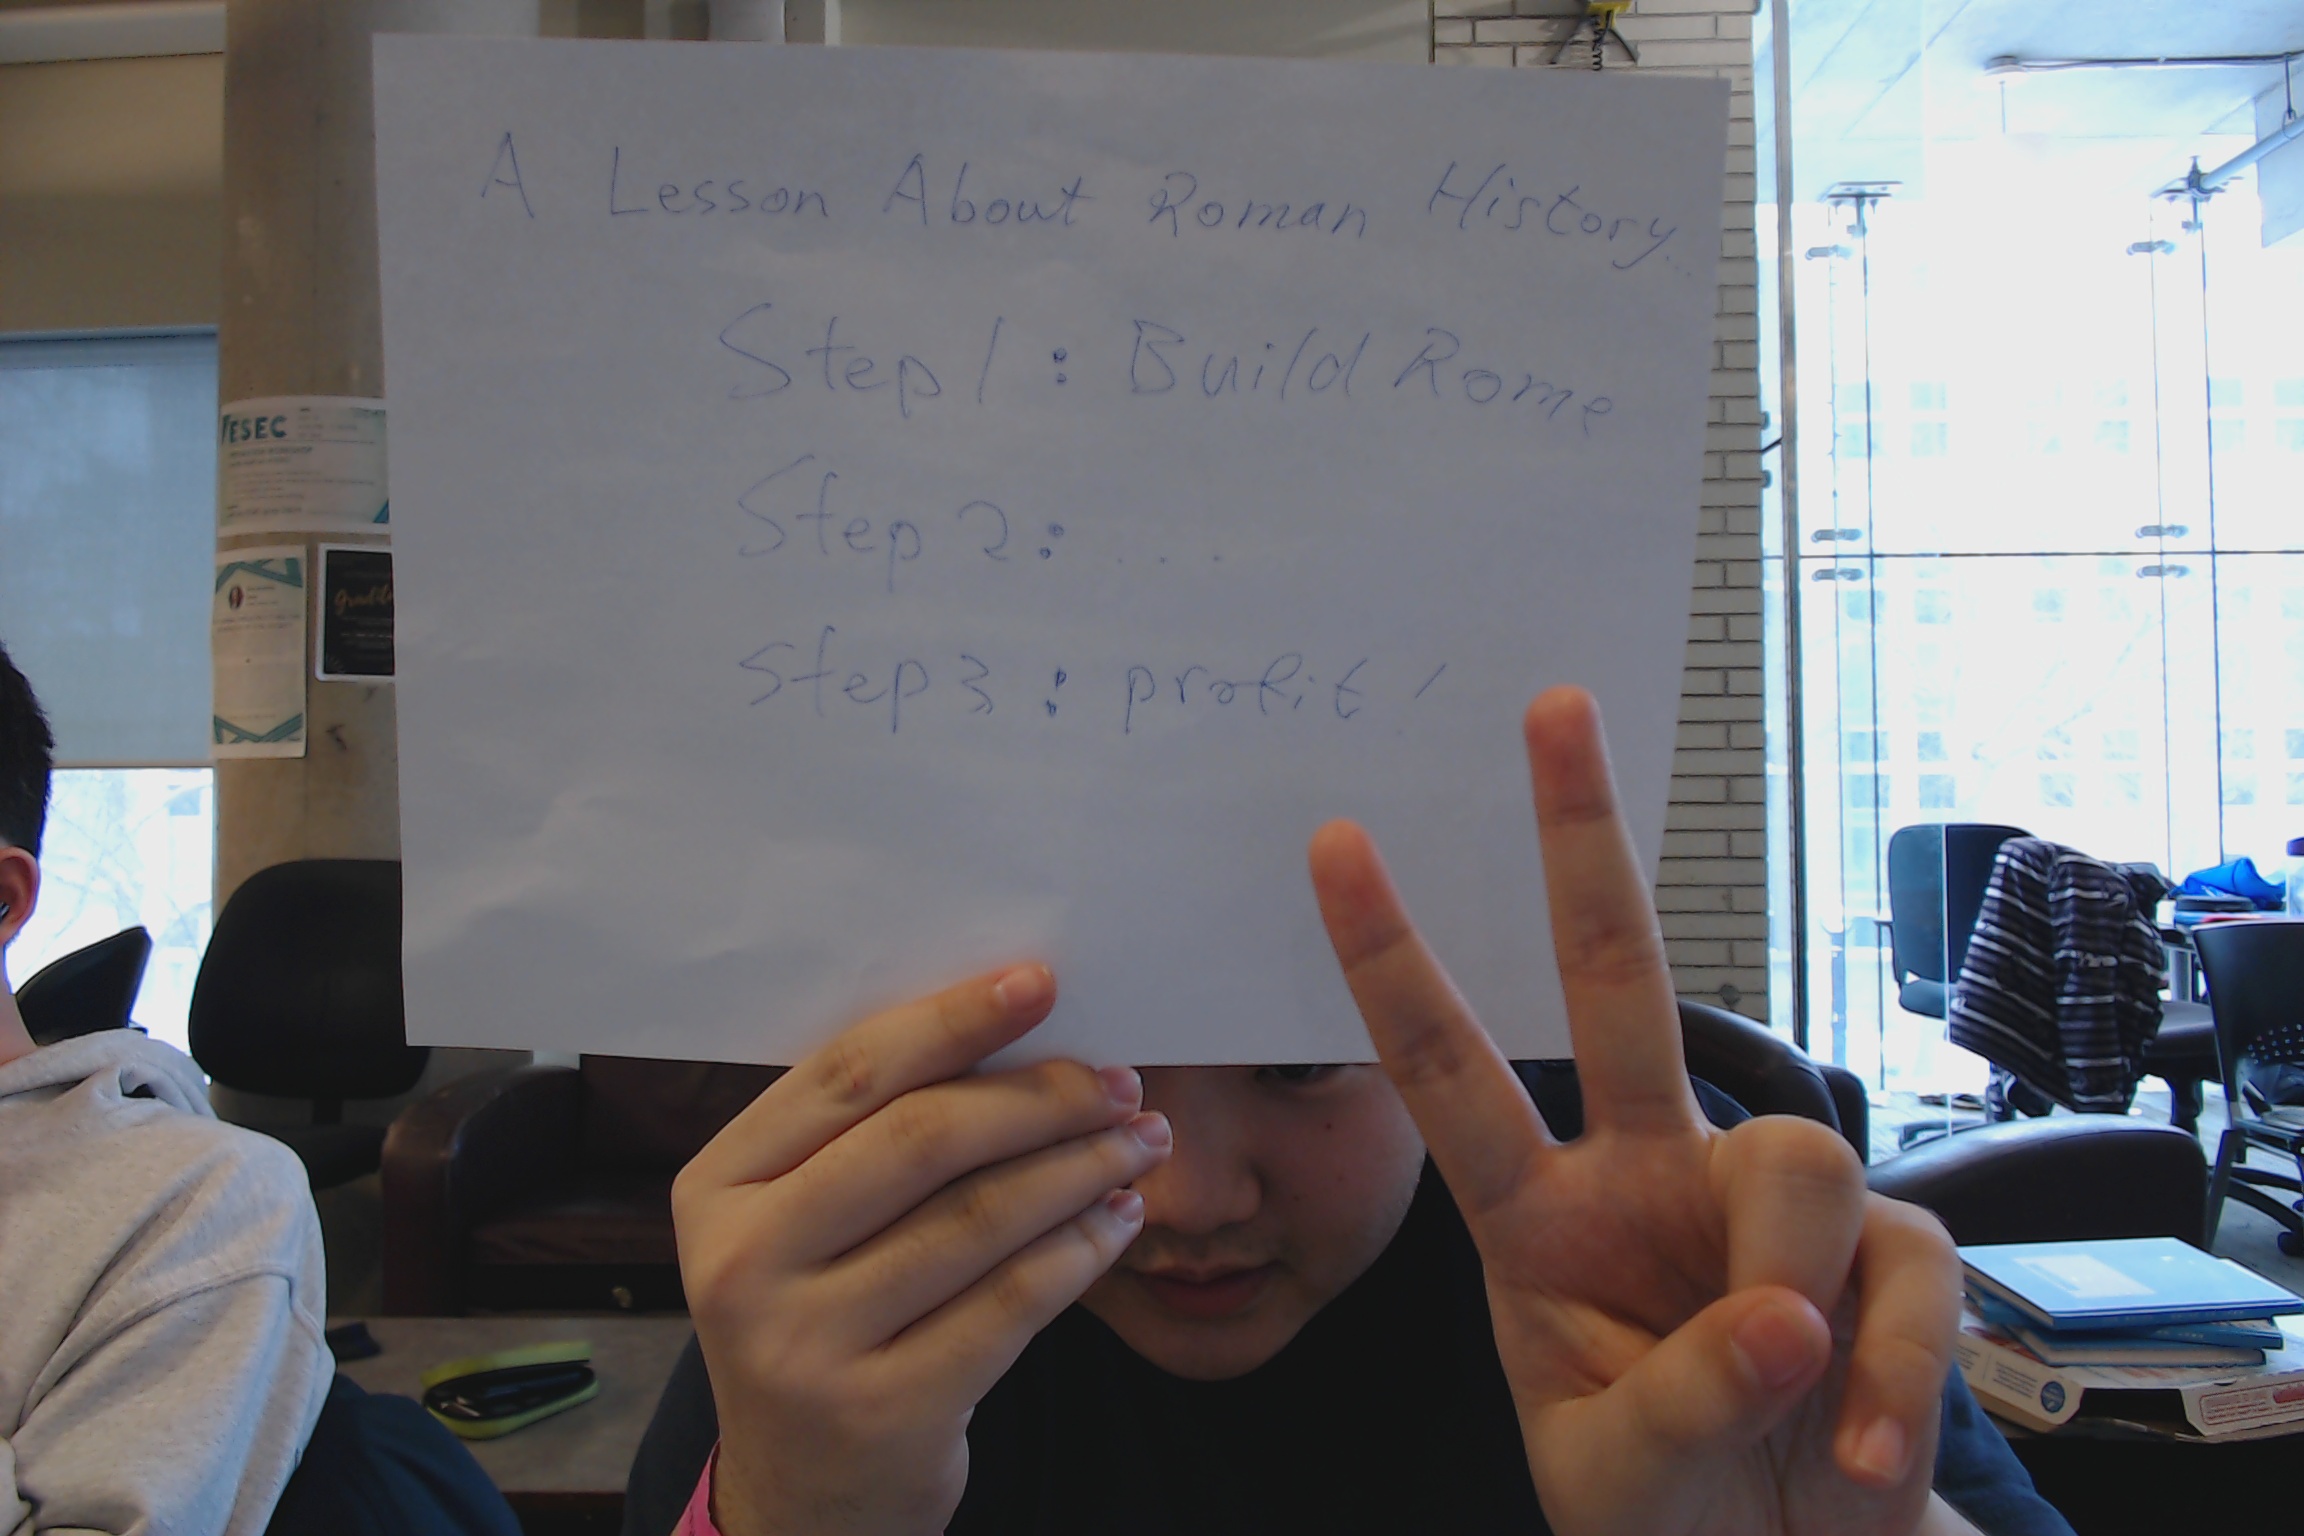 A Lesson About Roman History..
Step 1 : Build Rome
Step 2 : ...
Step 3 : profit !
ESEC